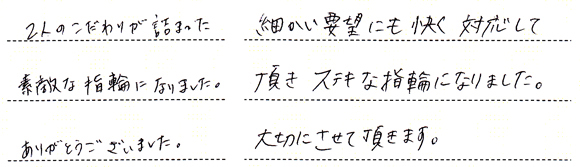 2人のこだわりが詰まった
素敵な指輪になりました。
ありがとうございました。
細かい要望にも快く対応して
頂きステキな指輪になりました。
大切にさせて頂きます。